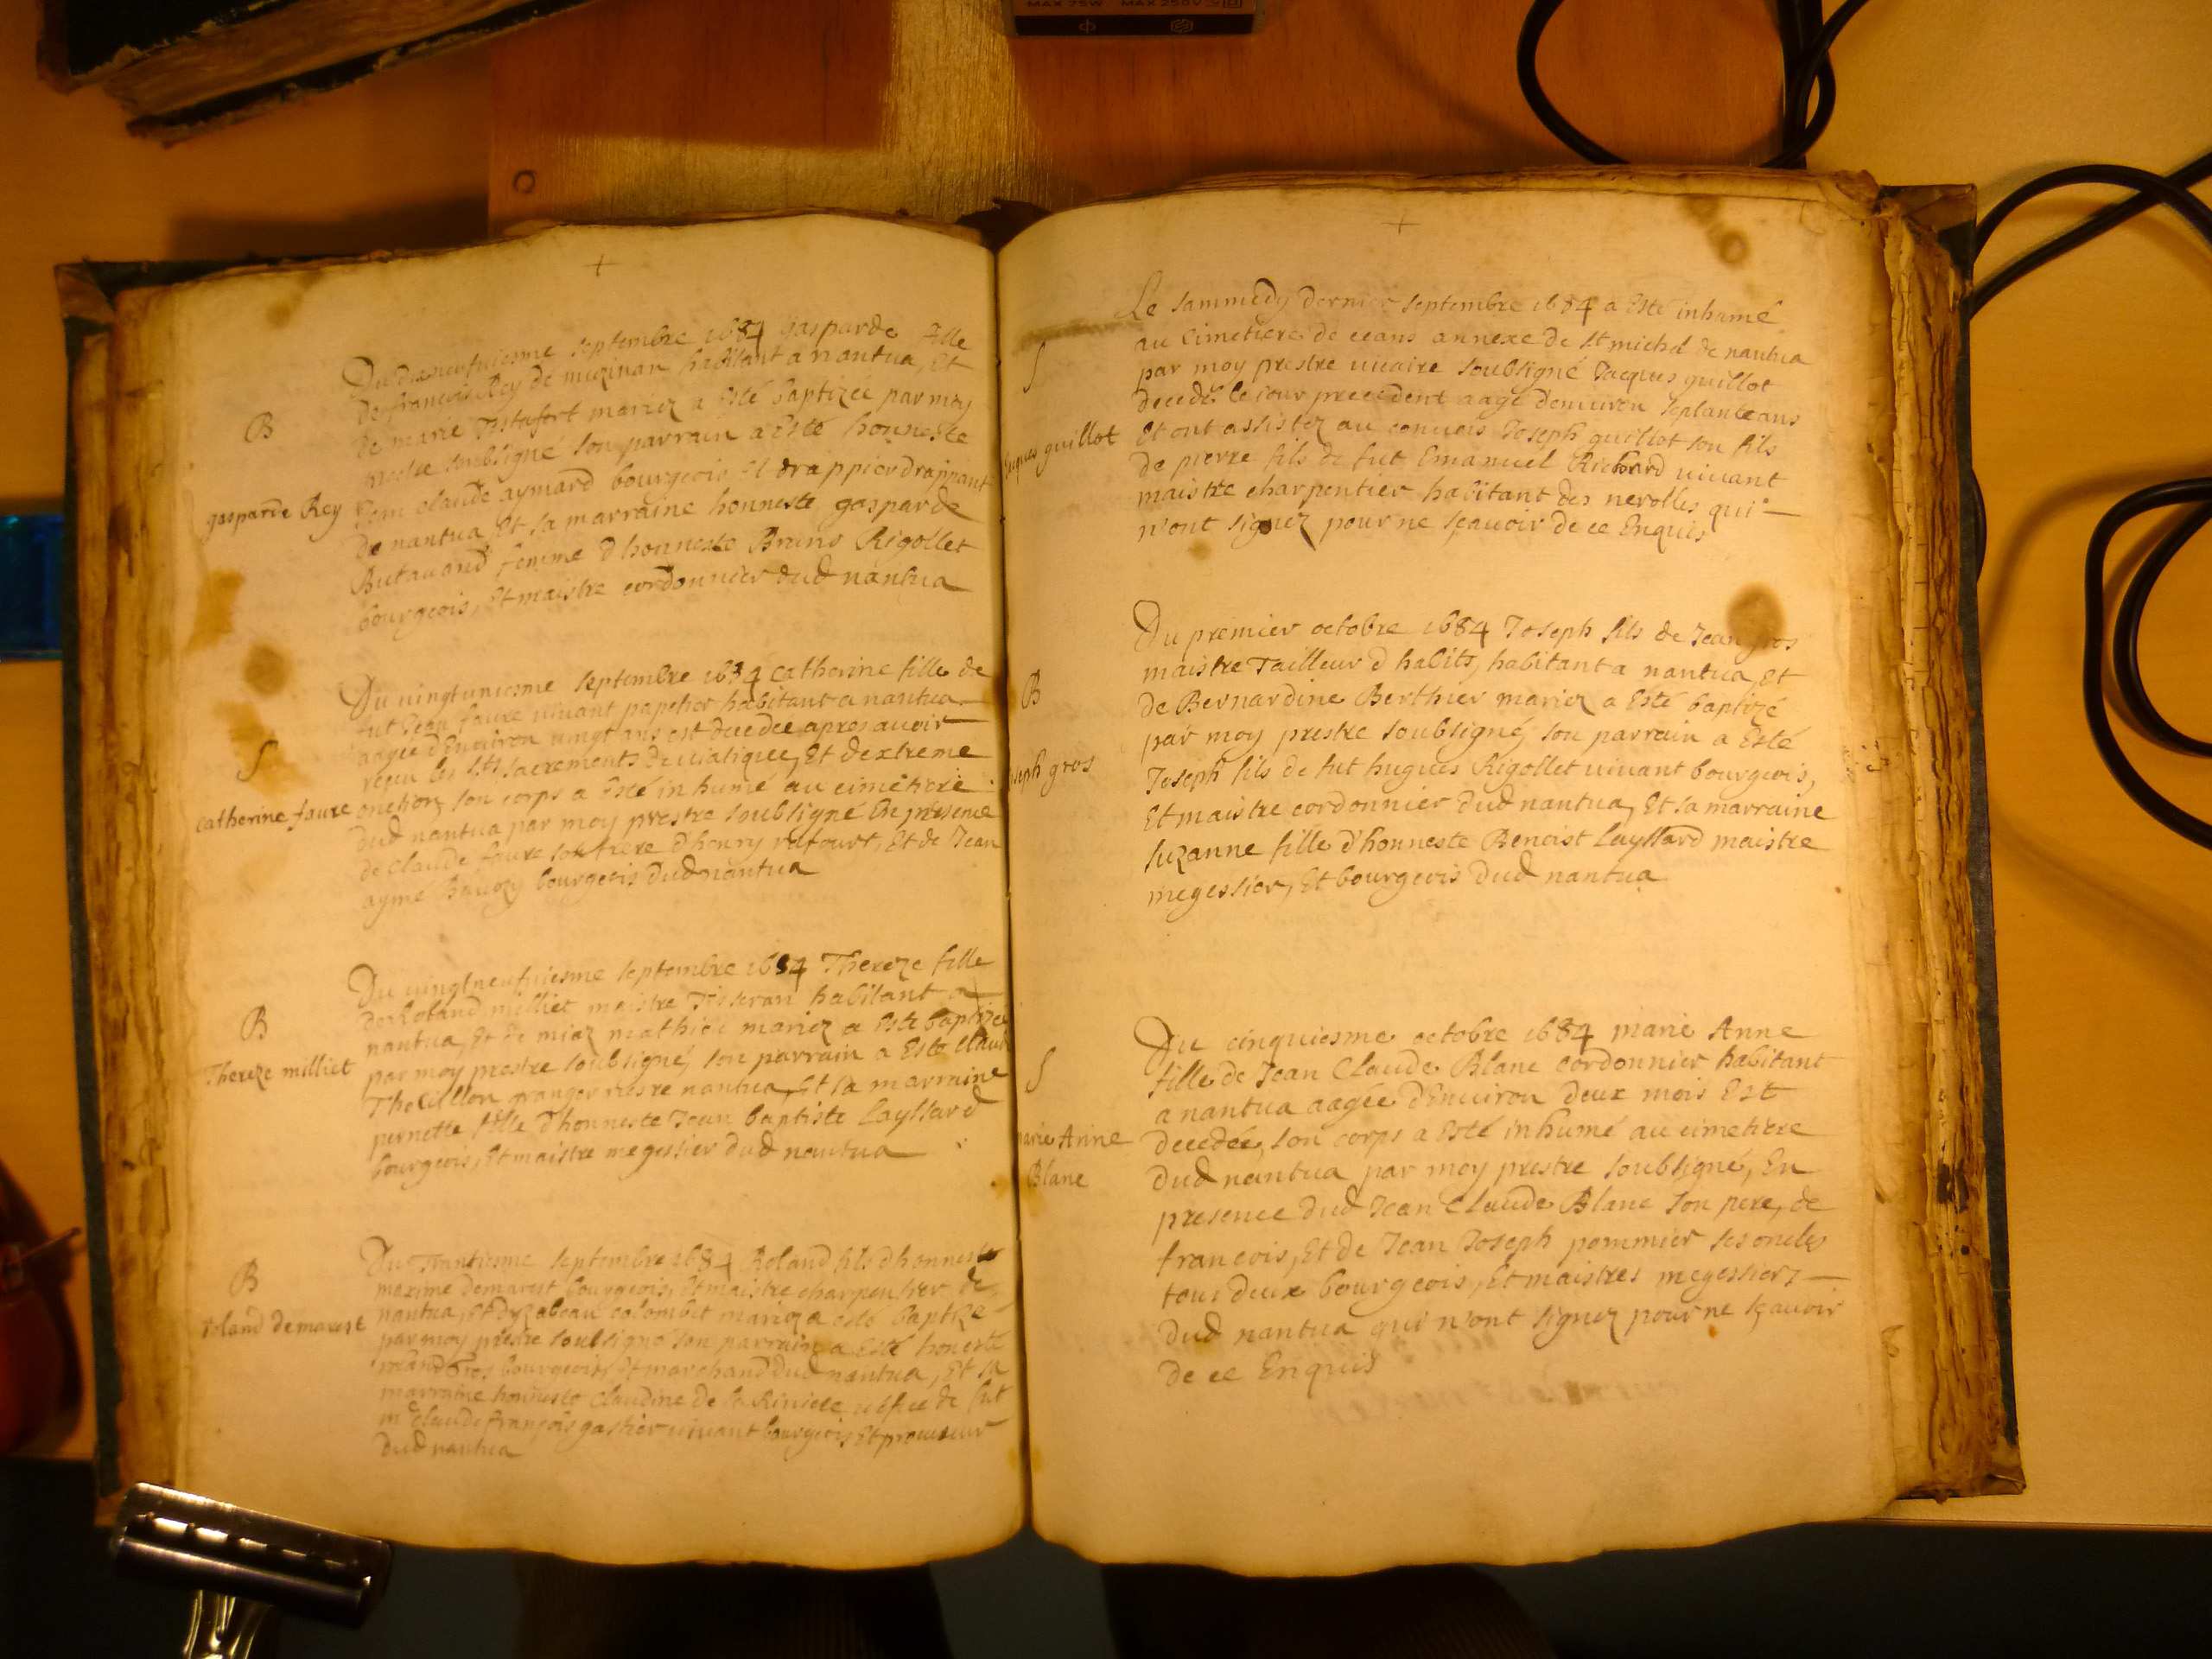 MAX 75W MAX 250V
+
B
gasparde Rey
Du dixneufuiesme septembre 1684 gasparde fille
de francois Rey de muzinan habitant a nantua, Et
de marie Testafort mariez a esté baptizée par moy
prestre soubsigné son parrain a Esté honneste
Jean claude aymard bourgeois et drappier drappant
de nantua Et sa marraine honneste gasparde
Butauand femme d'honneste Bruno Rigollet
bourgeois, Et maistre cordonnier dud nantua
S
catherine faure
Du uingtuniesme septembre 1684 Catherine fille de
fut Jean faure uiuant papetier habitant a nantua
aagée d'Enuiron uingt ans est decedée apres auoir
reçeu les Sts sacrements de uiatique, Et d'extreme
onction, son corps a Esté inhumé au cimetiere
dud nantua par moy prestre soubsigné En presence
de Claude faure son frere d'henry rafourt, Et de Jean
aymé bourgeois dud nantua
B
Thereze milliet
Du uingtneufuiesme septembre 1684 Thereze fille
de Roland milliet maistre Tisseran habitant a
nantua, Et de miaz mathieu mariez a Esté baptizée
par moy prestre soubsigné, son parrain a Esté Claude
Thouillon granger riesre nantua, Et sa marraine
pernette fille d'honneste Jean baptiste Layssard
bourgeois, Et maistre megissier dud nantua
B
roland demarest
Du Trantiesme septembre 1684 Roland fils d'honneste
maxime demarest bourgeois, Et maistre charpentier de
nantua, Et d'yzabeau colombet mariez a esté baptizé
par moy prestre soubsigné son parrain a Esté honeste
bourgeois, Et marchand dud nantua, Et sa
marraine honneste Claudine de la Riuiere uefue de fut
me claude françois gastier uiuant bourgeois Et procureur
dud nantua
+
S
Jacques guillot
Le sammedy dernier septembre 1684 a Esté inhumé
au Cimetiere de ceans annexe de St michel de nantua
par moy prestre uicaire soubsigné Jacques guillot
decedé le iour precedent aagé d'enuiron septante ans
Et ont assistez au conuois Joseph guillot son fils
de pierre fils de fut Emanuel Richard uiuant
maistre charpentier habitant des nerolles qui
n'ont signez pour ne sçauoir de ce Enquis
B
Joseph gros
Du premier octobre 1684 Joseph fils de Jean gros
maistre Tailleur d'habits, habitant a nantua, Et
de Bernardine Berthier mariez a Esté baptizé
par moy prestre soubsigné, son parrain a Esté
Joseph fils de fut hugues Rigollet uiuant bourgeois,
Et maistre cordonnier dud nantua, Et sa marraine
suzanne fille d'honneste Benoist Layssard maistre
megessier, Et bourgeois dud nantua
S
marie Anne
Blanc
Du cinquiesme octobre 1684 marie Anne
fille de Jean Claude Blanc cordonnier habitant
a nantua aagée d'Enuiron deux mois Est
decedée, son corps a Esté inhumé au cimetiere
dud nantua par moy prestre soubsigné, En
presence dud Jean Claude Blanc son pere, de
francois, Et de Jean Joseph pommier ses oncles
tous deux bourgeois, Et maistres megessiers
dud nantua qui n'ont signez pour ne sçauoir
de ce Enquis